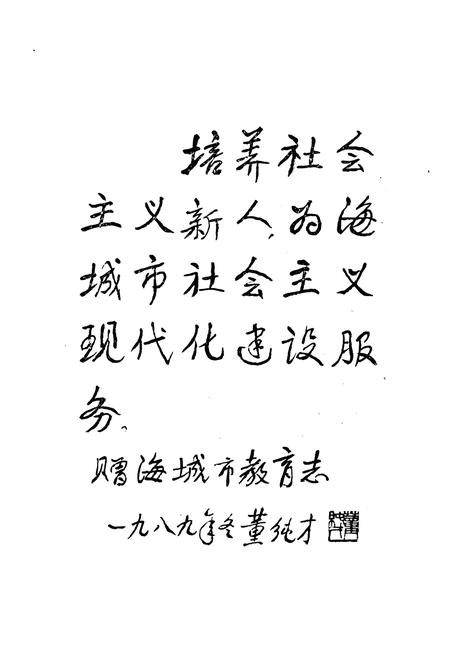 培养社会
主义新人，为海
城市社会主义
现代化建设服
务。
赠海城市教育志
一九八九年冬董纯才